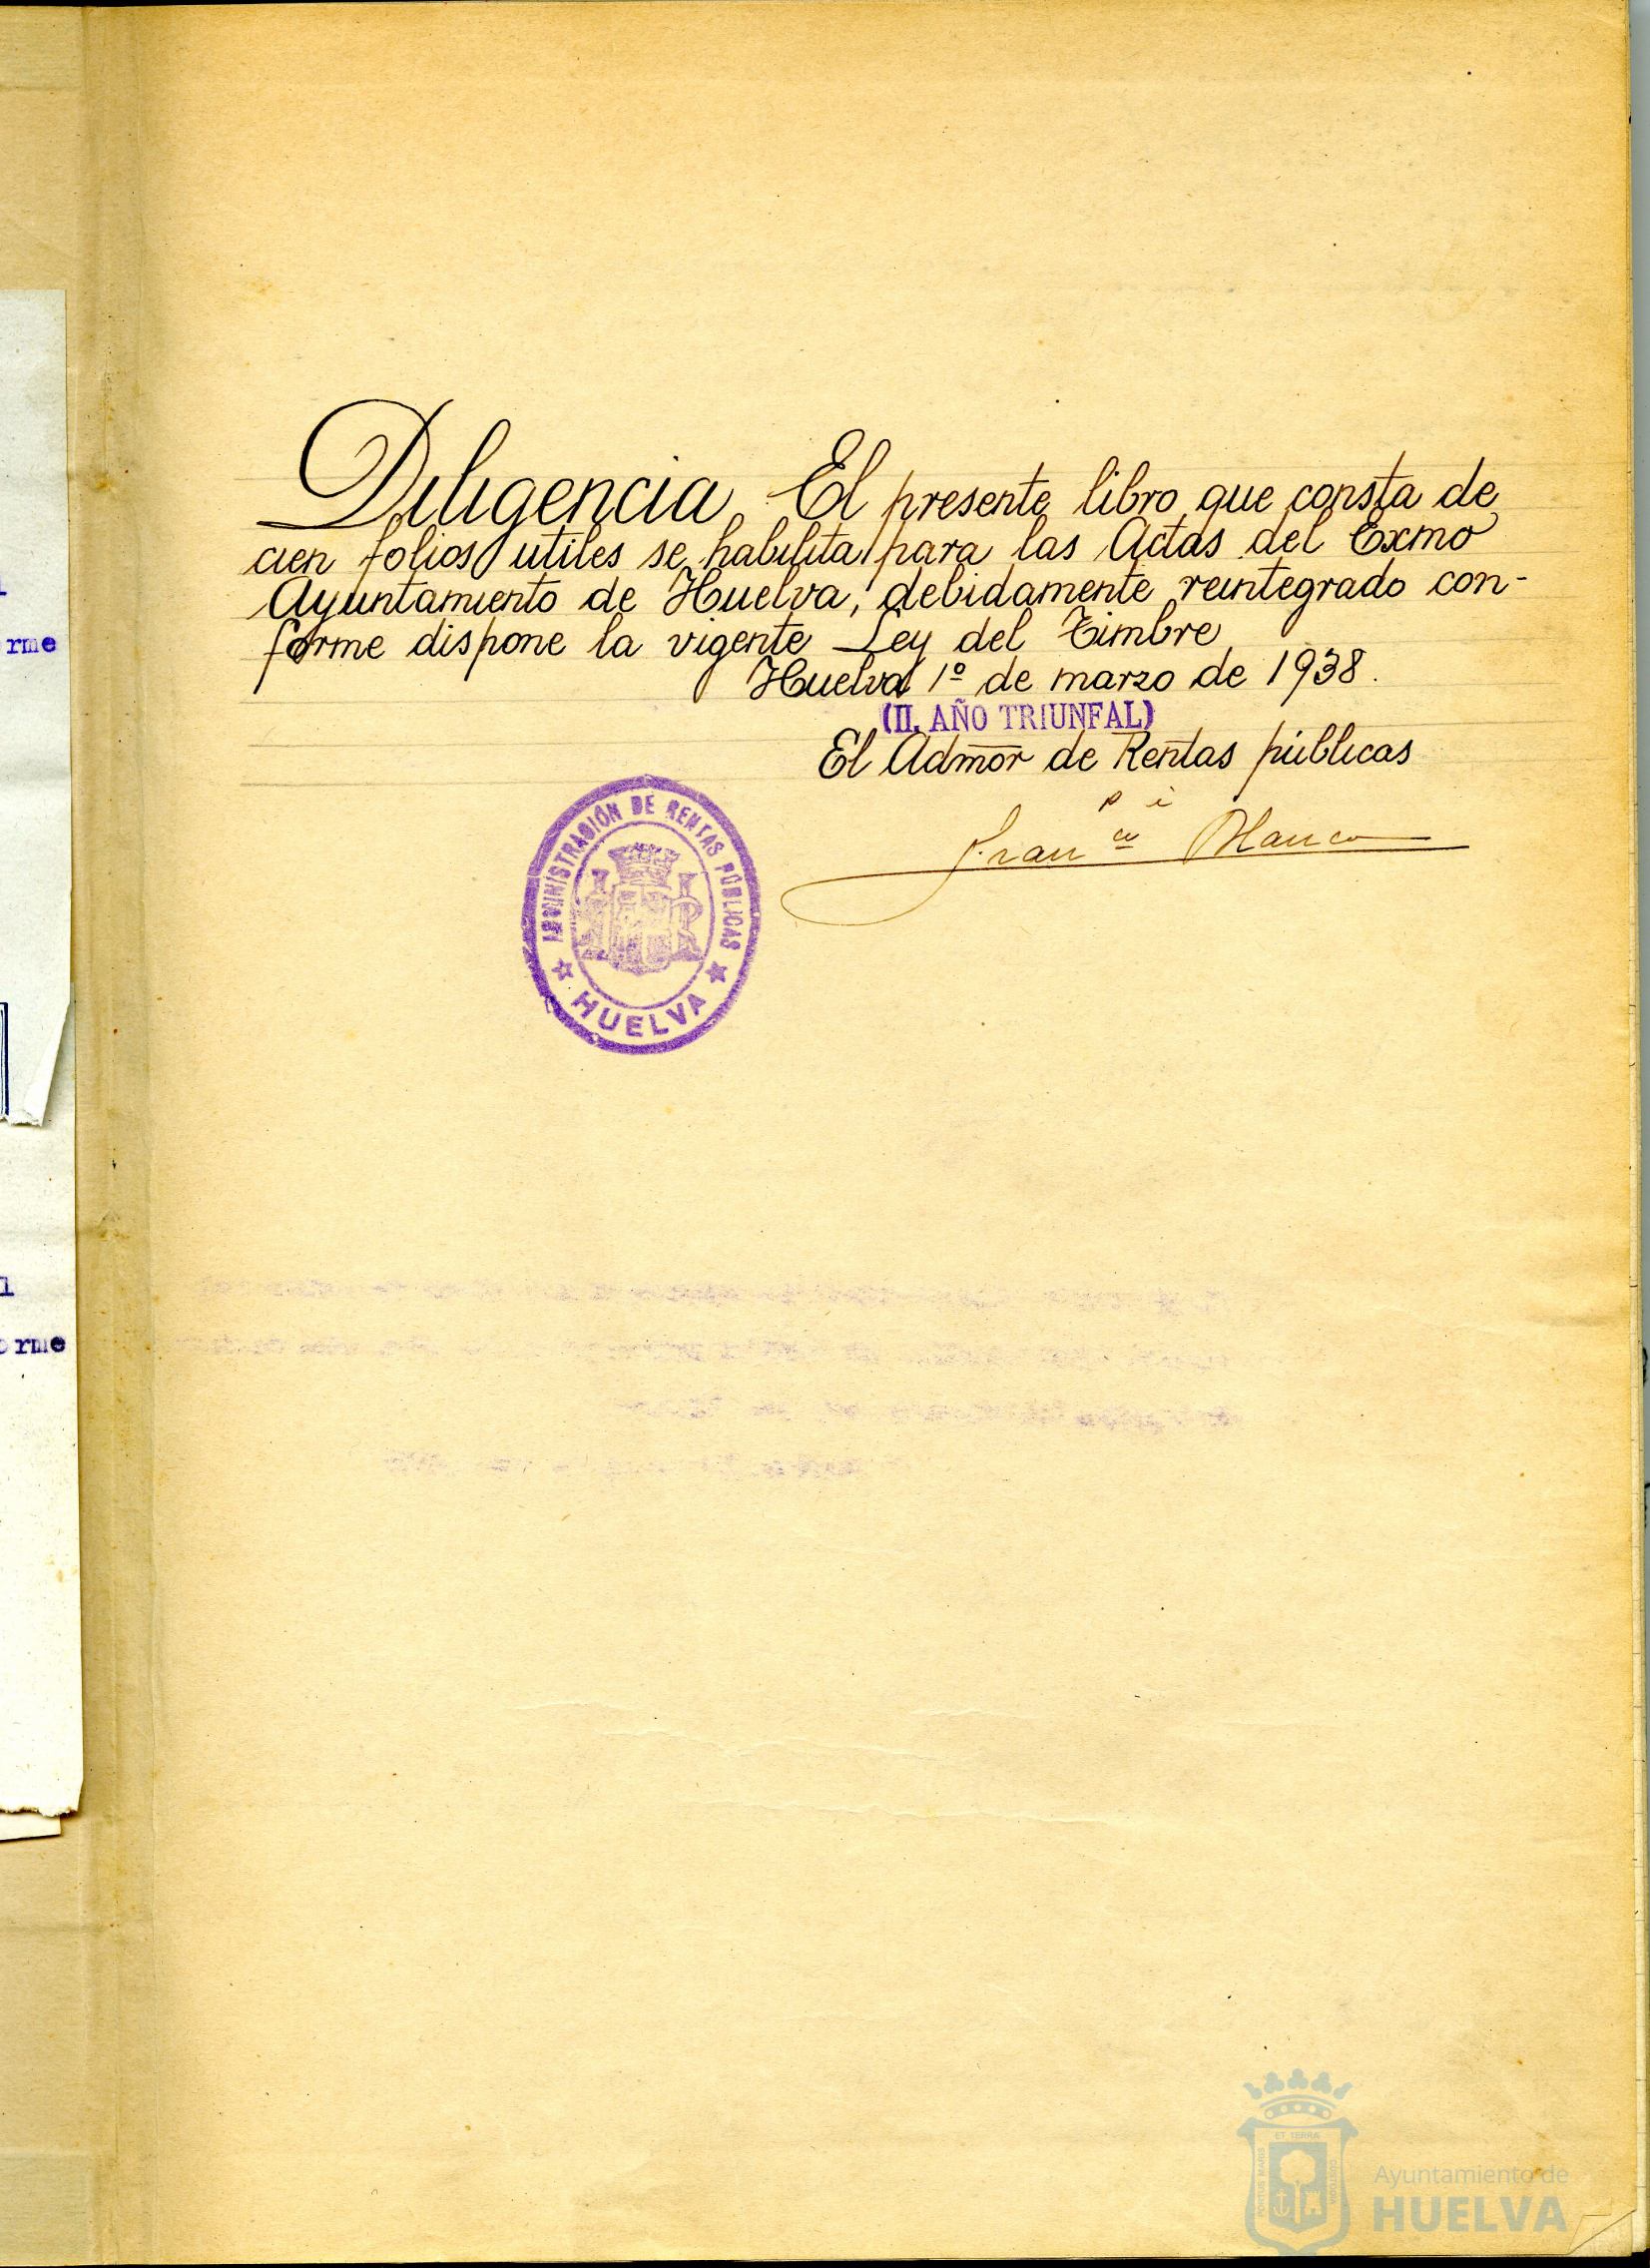 Diligencia El presente libro que consta de
cien folios utiles se habilita para las Actas del Excmo
Ayuntamiento de Huelva, debidamente reintegrado con-
forme dispone la vigente Ley del Timbre
Huelva 1º de marzo de 1938.
(II. AÑO TRIUNFAL)
El Admor de Rentas públicas
p i
Fran co Blanco
ADMINISTRACIÓN DE RENTAS PÚBLICAS
HUELVA
rme
l
orme
Ayuntamiento de
HUELVA